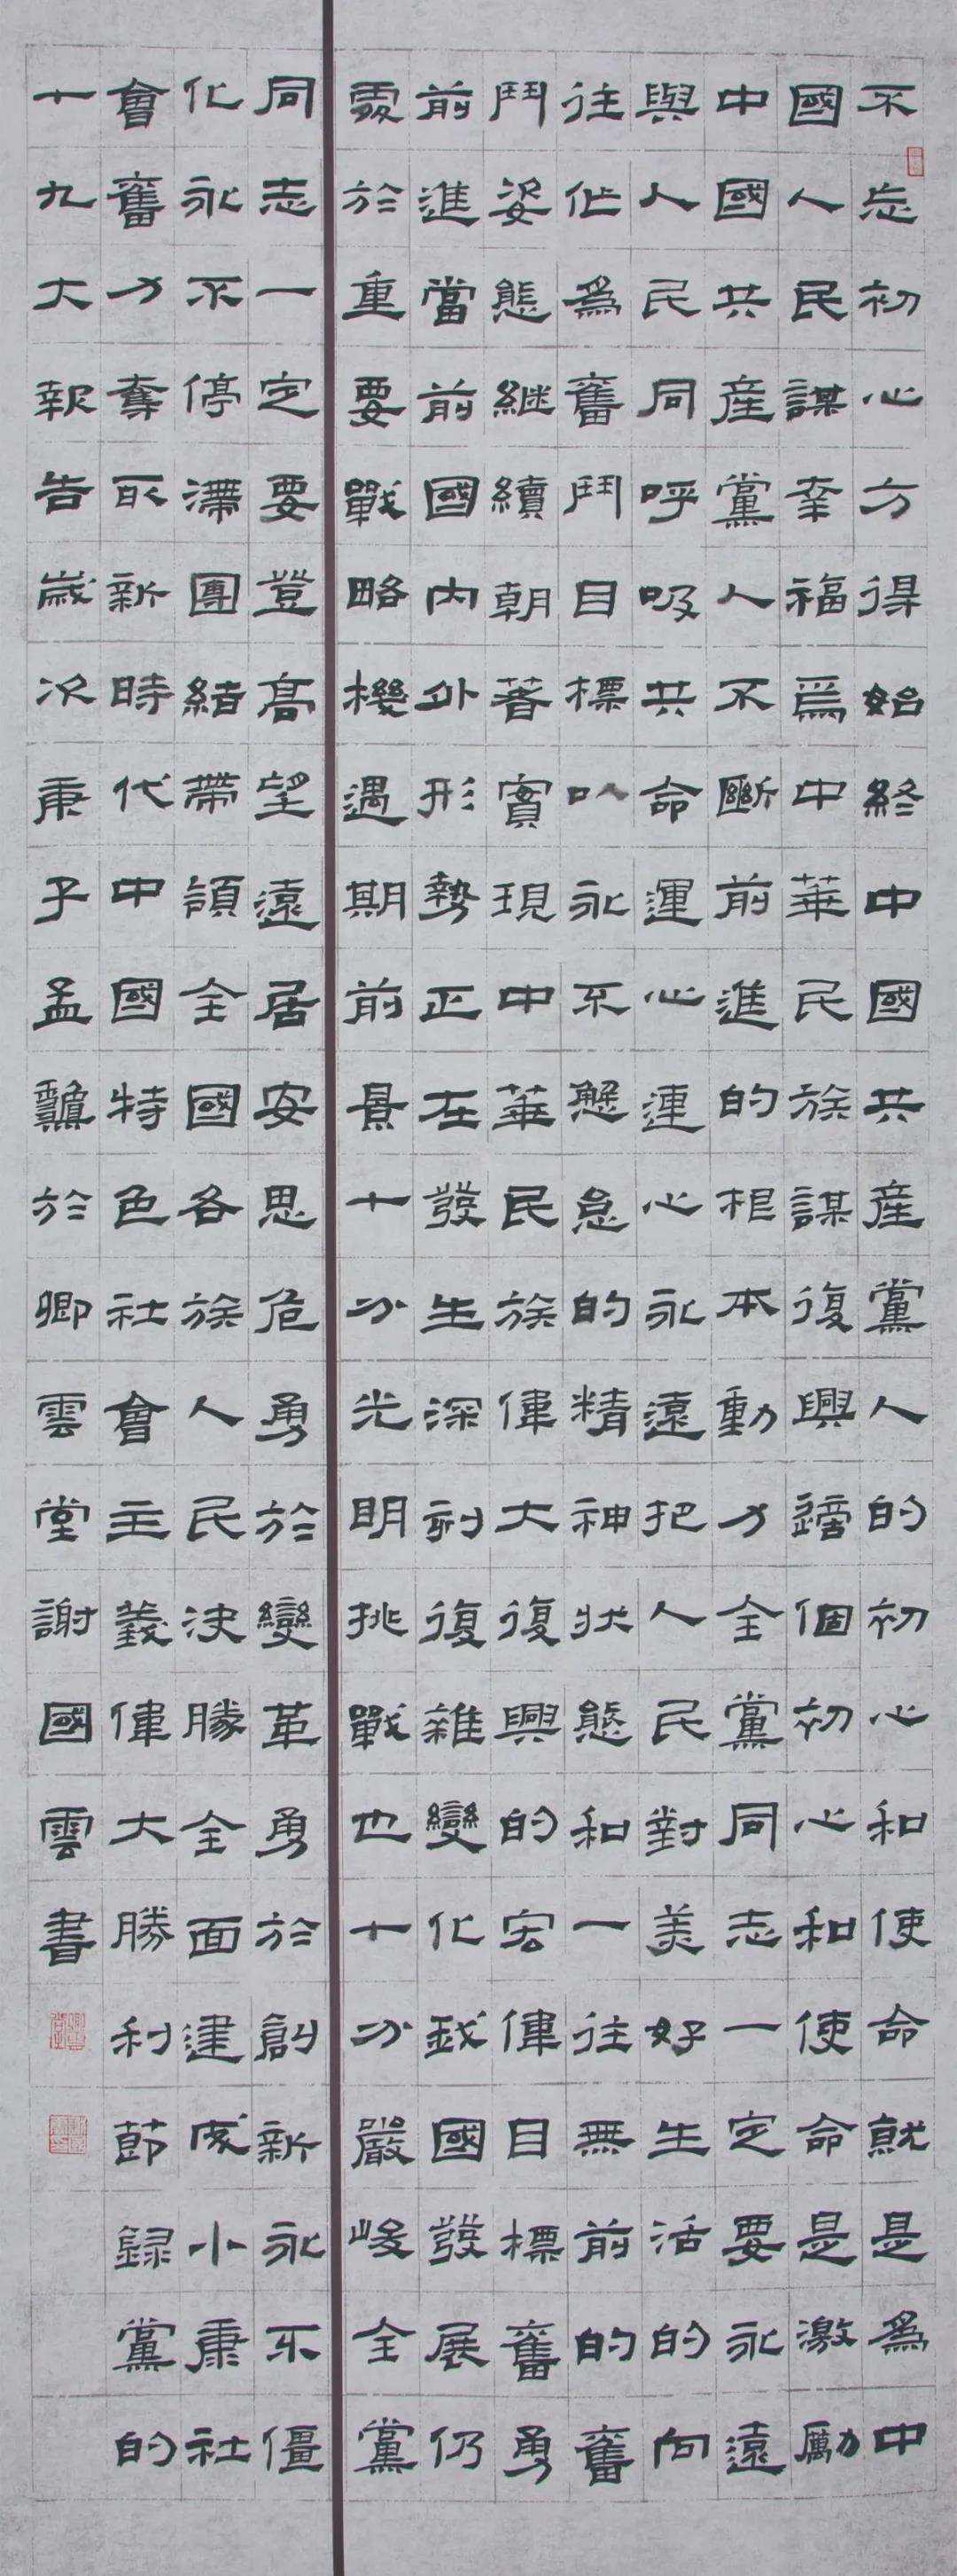 不忘初心方得始終中國共産黨人的初心和使命就是爲中
國人民謀幸福爲中華民族謀復興這個初心和使命是激勵
中國共産黨人不斷前進的根本動力全黨同志一定要永遠
與人民同呼吸共命運心連心永遠把人民對美好生活的向
往作爲奮鬥目標以永不懈怠的精神狀態和一往無前的奮
鬥姿態繼續朝著實現中華民族偉大復興的宏偉目標奮勇
前進當前國内外形勢正在發生深刻復雜變化我國發展仍
處於重要戰略機遇期前景十分光明挑戰也十分嚴峻全黨
同志一定要登高望遠居安思危勇於變革勇於創新永不僵
化永不停滯團結帶領全國各族人民決勝全面建成小康社
會奮力奪取新時代中國特色社會主義偉大勝利節録黨的
十九大報告歲次庚子孟於卿雲堂謝國雲書